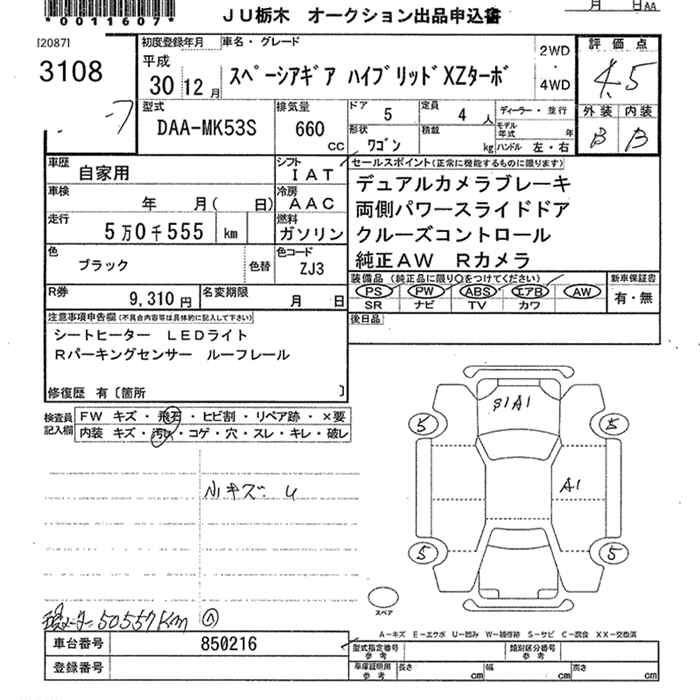 *0011607*
JU栃木 オークション出品申込書
月 日AA
[2087]
3108
初度登録年月
平成
30年12月
車名・グレード
スペーシアギア ハイブリッドXZターボ
2WD
・
4WD
評価点
4.5
外装 内装
B B
型式
DAA-MK53S
排気量
660
CC
ドア
5
定員
4
人
形状
ワゴン
積載
kg
ディーラー・並行
モデル年式
年
ハンドル 左・右
車歴
自家用
シフト
IAT
車検
年 月( 日)
冷房
AAC
走行
5万0千555 km
燃料
ガソリン
色
ブラック
色替
色コード
ZJ3
R券
9,310円
名変期限
月 日
セールスポイント(正常に機能するものに限ります)
デュアルカメラブレーキ
両側パワースライドドア
クルーズコントロール
純正AW Rカメラ
装備品(純正品に限り○をつけてください)
PS PW ABS エアB AW
SR ナビ TV カワ
新車保証書
有・無
後日品
注意事項申告欄(不具合内容等は具体的に記入して下さい)
シートヒーター LEDライト
Rパーキングセンサー ルーフレール
修復歴 有〔箇所 〕
検査員
記入欄
FW キズ・飛石・ヒビ割・リペア跡・×要
内装 キズ・汚れ・コゲ・穴・スレ・キレ・破レ
小キズ U
S1A1
A1
5
5
5
5
スペア
50,557Km
A-キズ E-エクボ U-凹み W-補修跡 S-サビ C-腐食 XX-交換済
車台番号
850216
登録番号
型式指定番号
参考
類別区分番号
参考
車庫証明用
参考
長さ cm
幅 cm
高さ cm